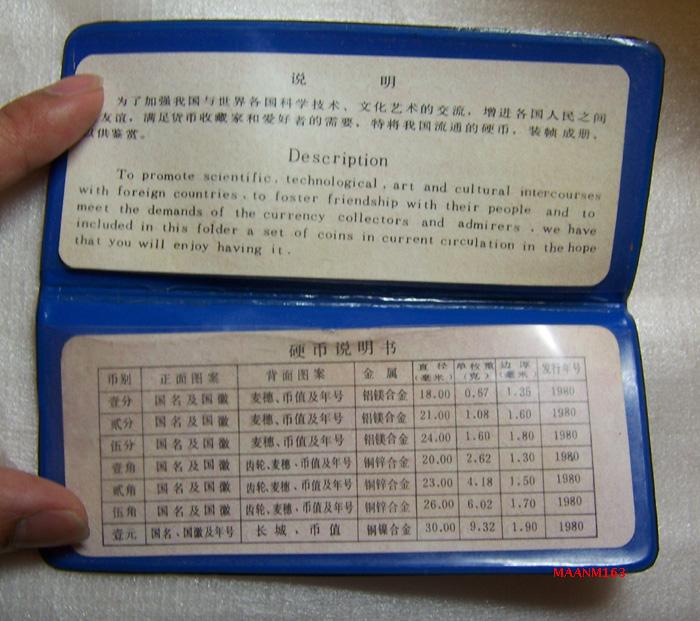 说 明
为了加强我国与世界各国科学技术、文化艺术的交流，增进各国人民之间
友谊，满足货币收藏家和爱好者的需要，特将我国流通的硬币，装帧成册、
供鉴赏。
Description
To promote scientific, technological, art and cultural intercourses
with foreign countries, to foster friendship with their people and to
meet the demands of the currency collectors and admirers, we have
included in this folder a set of coins in current circulation in the hope
that you will enjoy having it.
硬币说明书
币别 正面图案 背面图案 金属 直径(毫米) 单枚重(克) 边厚(毫米) 发行年号
壹分 国名及国徽 麦穗、币值及年号 铝镁合金 18.00 0.67 1.35 1980
贰分 国名及国徽 麦穗、币值及年号 铝镁合金 21.00 1.08 1.60 1980
伍分 国名及国徽 麦穗、币值及年号 铝镁合金 24.00 1.60 1.80 1980
壹角 国名及国徽 齿轮、麦穗、币值及年号 铜锌合金 20.00 2.62 1.30 1980
贰角 国名及国徽 齿轮、麦穗、币值及年号 铜锌合金 23.00 4.18 1.50 1980
伍角 国名及国徽 齿轮、麦穗、币值及年号 铜锌合金 26.00 6.02 1.70 1980
壹元 国名、国徽及年号 长城、币值 铜镍合金 30.00 9.32 1.90 1980
MAANM163